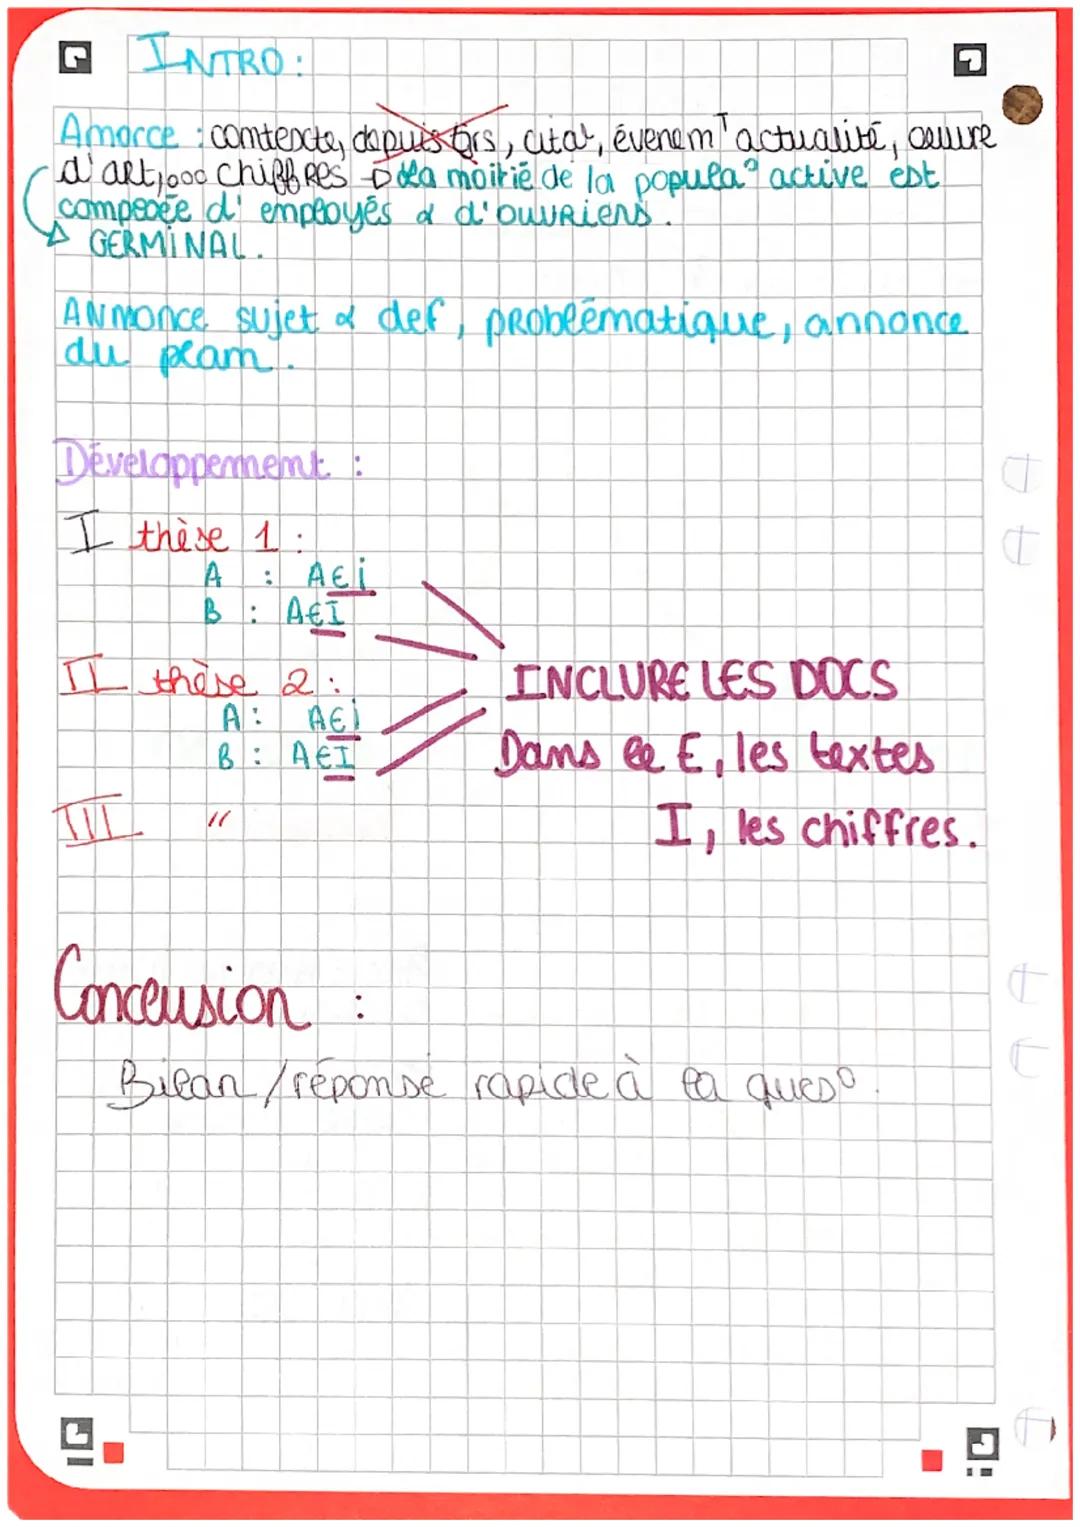 INTRO :
Amorce : contexte, depuis tjrs, citat°, évenemT actualité, oeuvre
d'art, ooo chiffres → la moitié de la popula° active est
composée d'employés & d'ouvriers.
→ GERMINAL.
Annonce sujet & def, problématique, annonce
du plan.
Développement :
I thèse 1 :
A : AEI
B : AEI
II thèse 2 :
A : AEI
B : AEI
III "
INCLURE LES DOCS
Dans le E, les textes
I, les chiffres.
Conclusion :
Bilan / réponse rapide à la ques°.